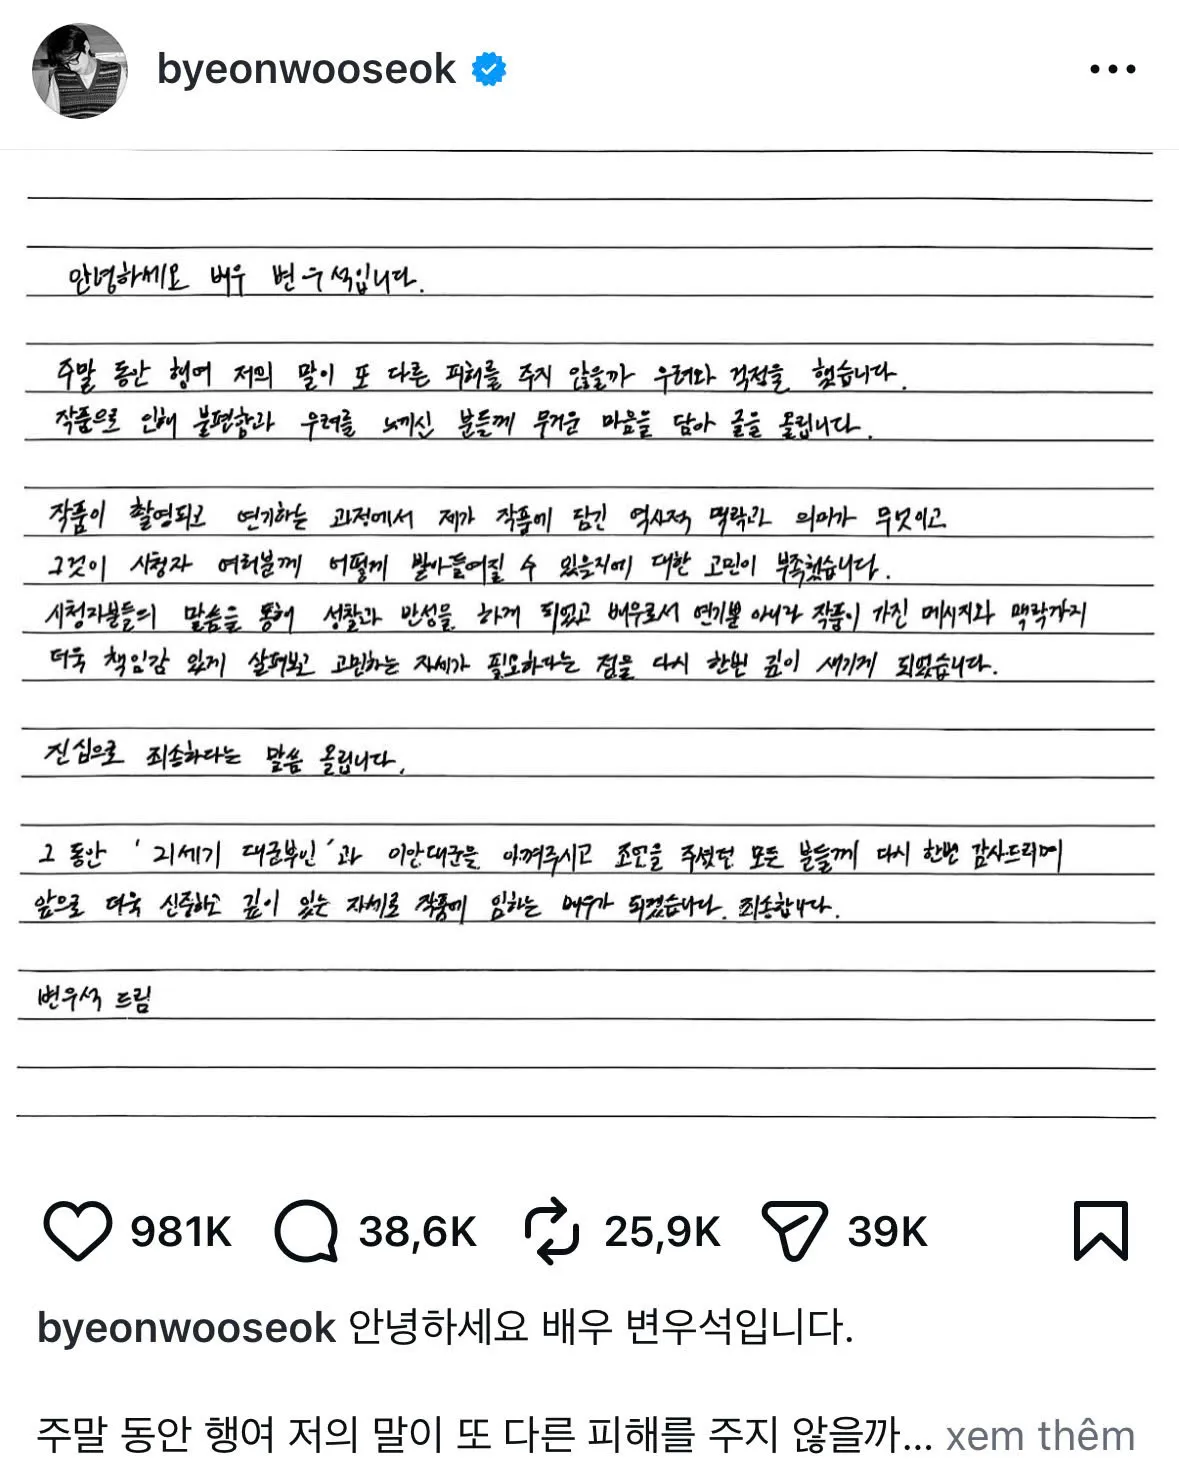 byeonwooseok
안녕하세요 배우 변우석입니다.
주말 동안 행여 저의 말이 또 다른 피해를 주지 않을까 우려와 걱정을 했습니다.
작품으로 인해 불편함과 우려를 느끼신 분들께 무거운 마음을 담아 글을 올립니다.
작품이 촬영되고 연기하는 과정에서 제가 작품에 담긴 역사적 맥락과 의미가 무엇이고
그것이 시청자 여러분께 어떻게 받아들여질 수 있을지에 대한 고민이 부족했습니다.
시청자분들의 말씀을 통해 성찰과 반성을 하게 되었고 배우로서 연기뿐 아니라 작품이 가진 메시지와 맥락까지
더욱 책임감 있게 살펴보고 고민하는 자세가 필요하다는 점을 다시 한번 깊이 새기게 되었습니다.
진심으로 죄송하다는 말씀 올립니다.
그 동안 '21세기 대군부인'과 이안대군을 아껴주시고 조언을 주셨던 모든 분들께 다시 한번 감사드리며
앞으로 더욱 신중하고 깊이 있는 자세로 작품에 임하는 배우가 되겠습니다. 죄송합니다.
변우석 드림
981K 38,6K 25,9K 39K
byeonwooseok 안녕하세요 배우 변우석입니다.
주말 동안 행여 저의 말이 또 다른 피해를 주지 않을까... xem thêm